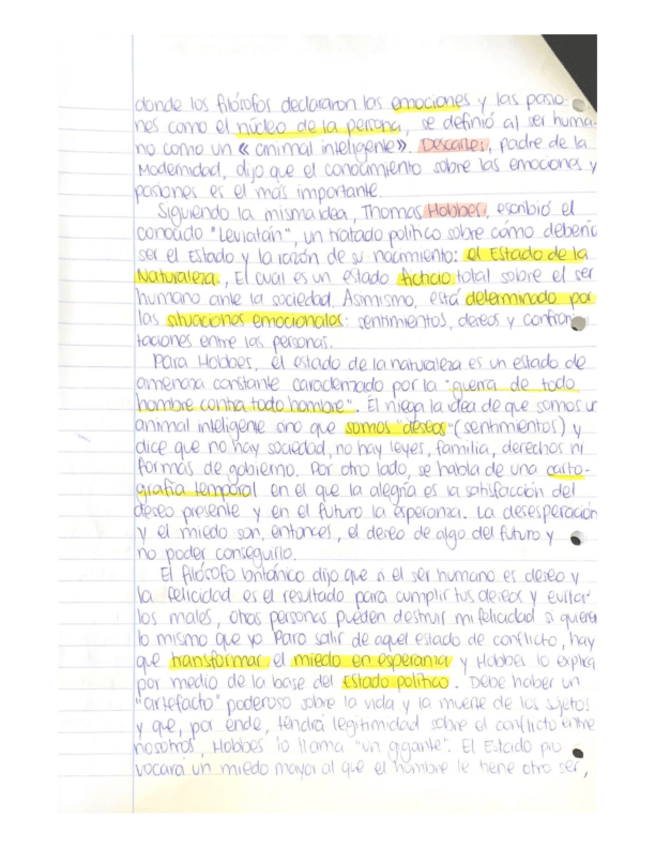 donde los filósofos declararon las emociones y las pasio-
nes como el núcleo de la persona, se definió al ser huma-
no como un « animal inteligente». Descartes, padre de la
Modernidad, dijo que el conocimiento sobre las emociones y
pasiones es el más importante.
Siguiendo la misma idea, Thomas Hobbes, escribió el
conocido "Leviatán", un tratado político sobre cómo debería
ser el Estado y la razón de su nacimiento: el Estado de la
Naturaleza, El cual es un estado ficticio total sobre el ser
humano ante la sociedad. Asimismo, está determinado por
las situaciones emocionales: sentimientos, deseos y confron
taciones entre las personas.
Para Hobbes, el estado de la naturaleza es un estado de
amenaza constante caracterizado por la "guerra de todo
hombre contra todo hombre". Él niega la idea de que somos un
animal inteligente sino que somos "deseos" (sentimientos) y
dice que no hay sociedad, no hay leyes, familia, derechos ni
formas de gobierno. Por otro lado, se habla de una carto-
grafía temporal en el que la alegría es la satisfacción del
deseo presente y en el futuro la esperanza. La desesperación
y el miedo son, entonces, el deseo de algo del futuro y
no poder conseguirlo.
El filósofo británico dijo que si el ser humano es deseo y
la felicidad es el resultado para cumplir tus deseos y evitar
los males, otras personas pueden destruir mi felicidad si quieren
lo mismo que yo. Para salir de aquel estado de conflicto, hay
que transformar el miedo en esperanza y Hobbes lo explica
por medio de la base del Estado político. Debe haber un
"artefacto" poderoso sobre la vida y la muerte de los sujetos
y que, por ende, tendrá legitimidad sobre el conflicto entre
nosotros, Hobbes lo llama "un gigante". El Estado pro
vocará un miedo mayor al que el hombre le tiene otro ser,